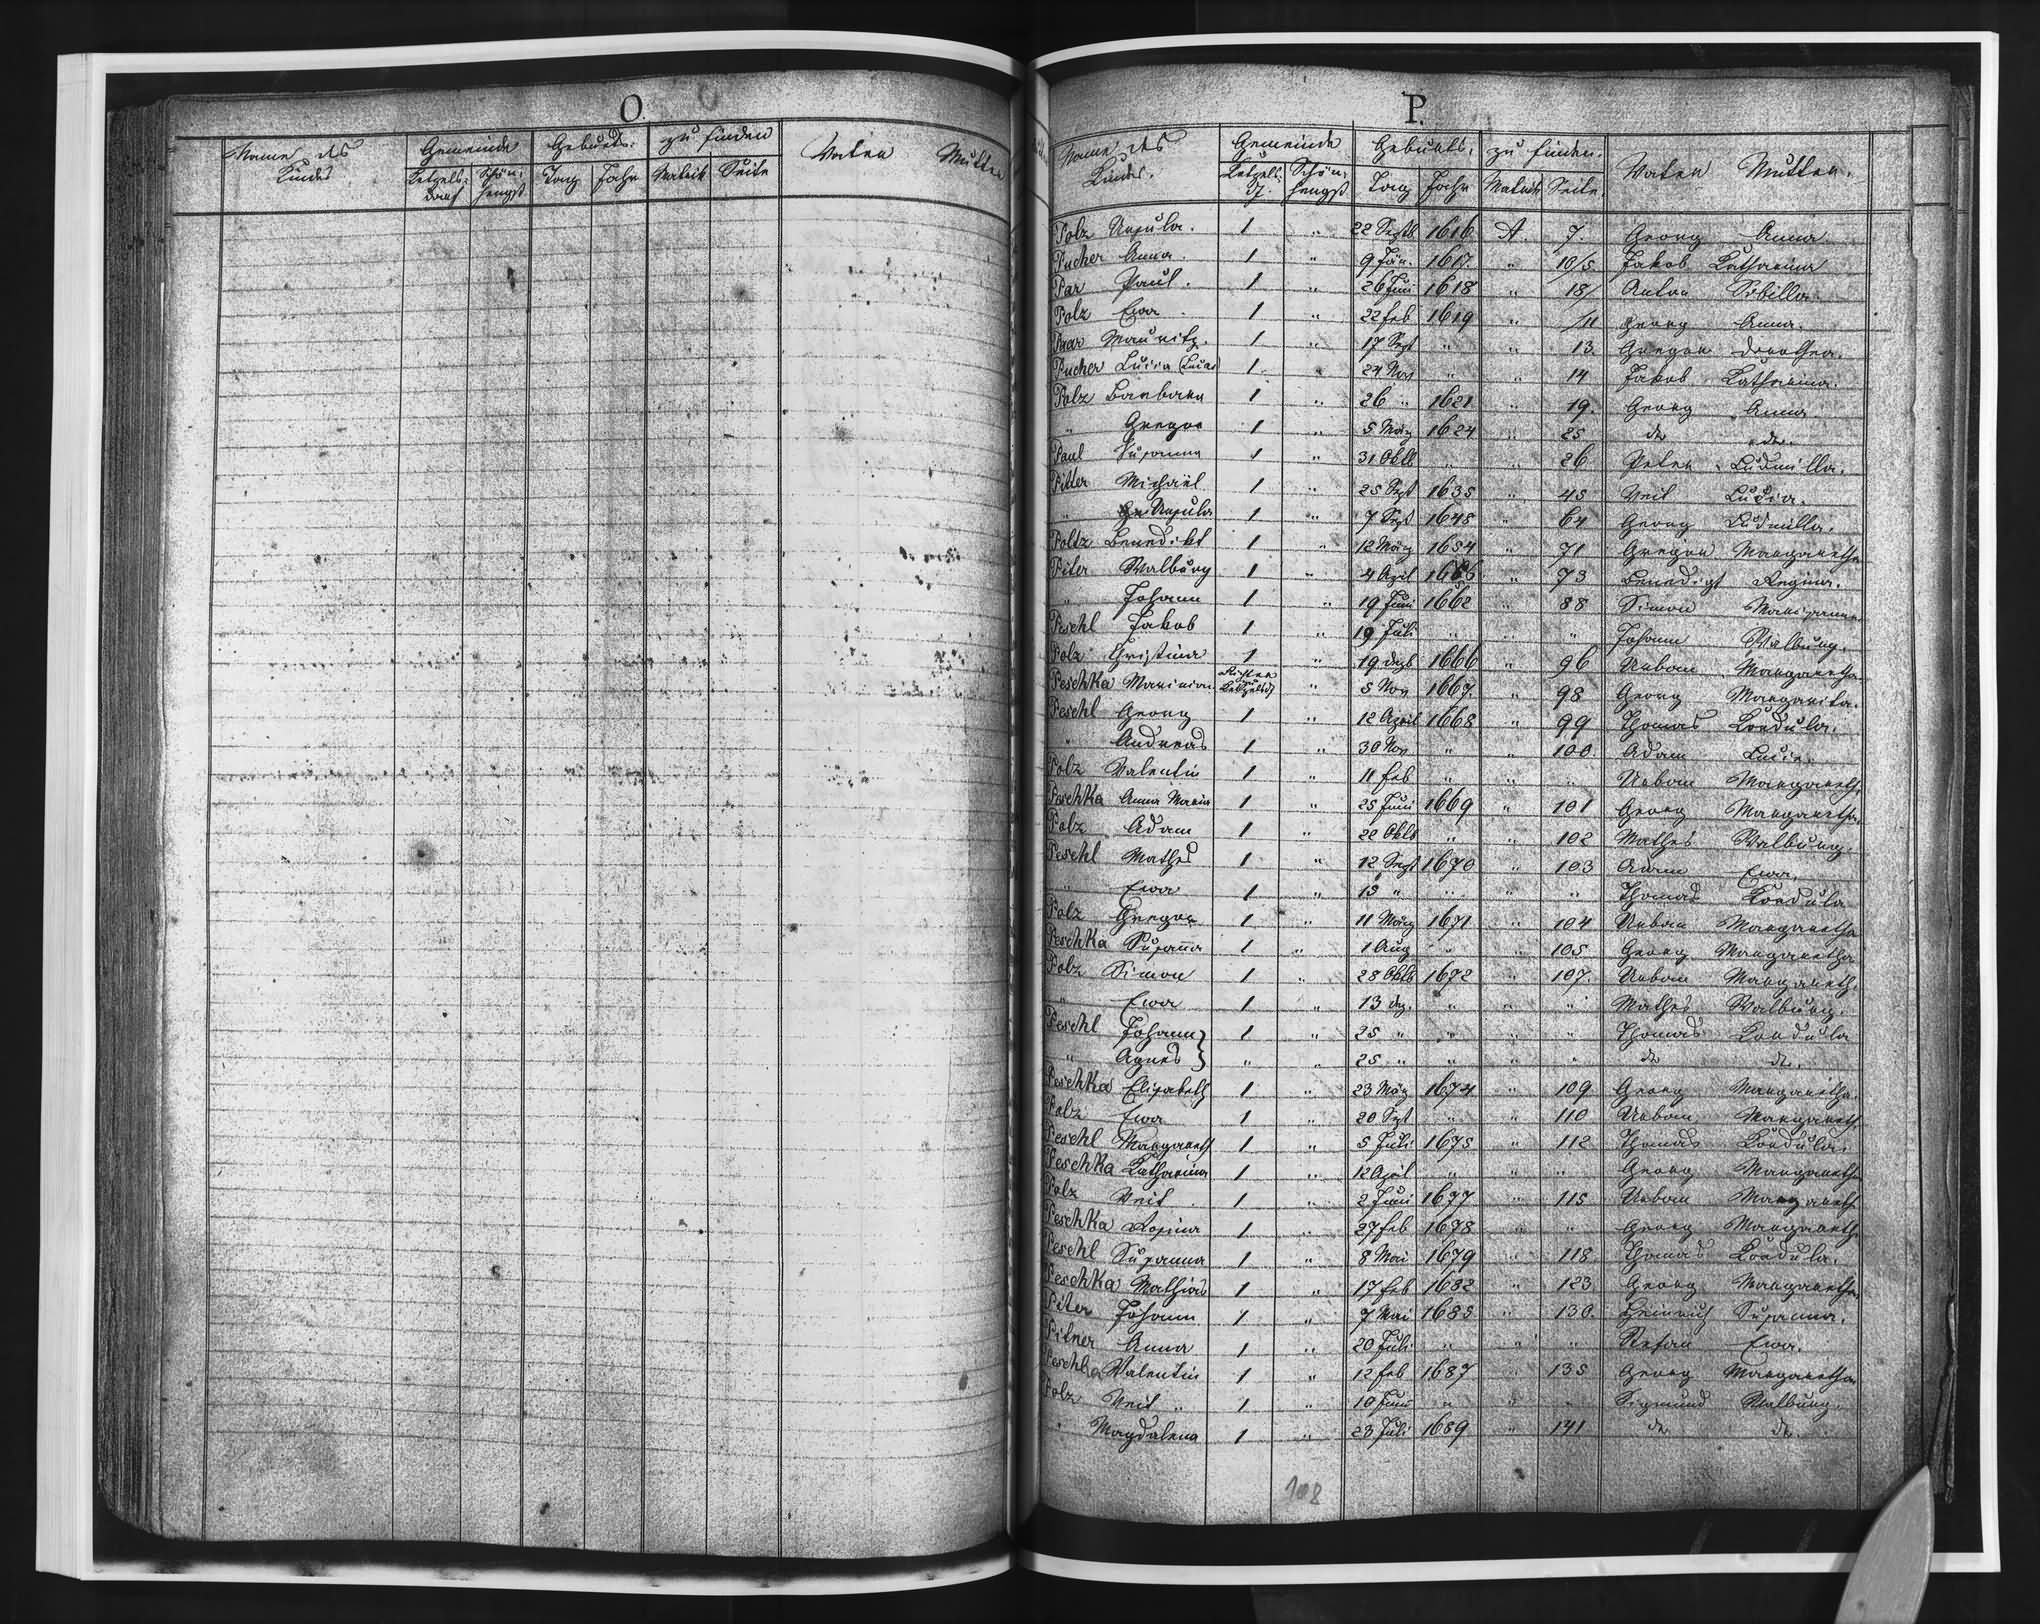 O.
Name des Kindes Gemeinde Geburts- zu finden Vater Mutter
Ketzelsdorf Schönhengst Tag Jahr Matrik Seite
P.
Name des Kindes. Gemeinde Geburts- zu finden. Vater Mutter.
Ketzelsdf. Schönhengst Tag Jahr Matrik Seite.
Polz Ursula. 1 " 22 Septb 1616 A. 7. Georg Anna
Pucher Anna. 1 " 9 Jän. 1617. " 10/5. Jakob Katharina
Par Paul. 1 " 26 Juni 1618 " 18/ Anton Sibilla.
Polz Eva. 1 " 22 Feb 1619 " /11 Georg Anna.
Paar Mauritz. 1 " 17 Sept " " 13. Gregor Dorothea.
Pucher Lucia (Lucas) 1 " 24 Nov " " 14 Jakob Katharina.
Polz Barbara 1 " 26 " 1621 " 19. Georg Anna
" Gregor 1 " 5 März 1624 " 25 dto dto.
Paul Susanna 1 " 31 Oktb " " 26 Peter Ludmilla.
Pitter Michael 1 " 25 Sept 1635 " 45 Veit Lucia.
" Ursula 1 " 7 Sept 1648 " 64 Georg Ludmilla.
Poltz Benedikt 1 " 12 März 1654 " 71 Gregor Margaretha
Piter Walburg 1 " 4 April 1656 " 73 Benedigt Regina.
" Johann 1 " 19 Juni 1662 " 88 Simon Marianna
Peschl Jakob 1 " 19 Juli " " " Johann Walburg.
Polz Christina 1 " 19 Dezb 1666 " 96 Urban Margaretha
Peschka Ketzelsdf " 5 Nov 1667. " 98 Georg Margarita.
Peschl Georg 1 " 12 April 1668 " 99 Thomas Kordula.
" Andreas 1 " 30 Nov " " 100. Adam Lucia.
Polz Valentin 1 " 11 Feb " " " Urban Margareth.
Peschka Anna Maria 1 " 25 Juni 1669 " 101 Georg Margaretha.
Polz Adam 1 " 22 Oktb " " 102 Mathes Walburg.
Peschl Mathes 1 " 12 Sept 1670 " 103 Adam Eva.
" Eva 1 " 15 " " " " Thomas Kordula
Polz Gregor 1 " 11 März 1671 " 104 Urban Margaretha
Peschka Susaña 1 " 1 Aug " " 105 Georg Margaretha
Polz Simon 1 " 28 Oktb 1672 " 107. Urban Margareth.
" Eva 1 " 13 Dez. " " " Mathes Walburg.
Peschl Johann } 1 " 25 " " " " Thomas Kordula
" Agnes } " " 25 " " " " dto dto.
Peschka Elisabeth 1 " 23 März 1674 " 109 Georg Margaretha.
Polz Eva 1 " 20 Sept " " 110 Urban Margareth
Peschl Margareth 1 " 5 Juli 1675 " 112 Thomas Kordula.
Peschka Katharina 1 " 12 April " " " Georg Margareth.
Polz Veit 1 " 2 Juni 1677 " 115 Urban Margareth.
Peschka Rosina 1 " 27 Feb 1678 " " Georg Margareth.
Peschl Susanna 1 " 8 Mai 1679 " 118 Thomas Kordula.
Peschka Mathias 1 " 17 Feb 1682 " 123 Georg Margaretha
Piter Johann 1 " 7 Mai 1685 " 130. Heinrich Susanna.
Pitner Anna 1 " 20 Juli " " " Stefan Eva.
Peschka Valentin 1 " 12 Feb 1687 " 135 Georg Margaretha
Polz Veit " 1 " 10 Juni " " " Sigmund Walburg.
" Magdalena 1 " 23 Juli 1689 " 141 dto dto.
108